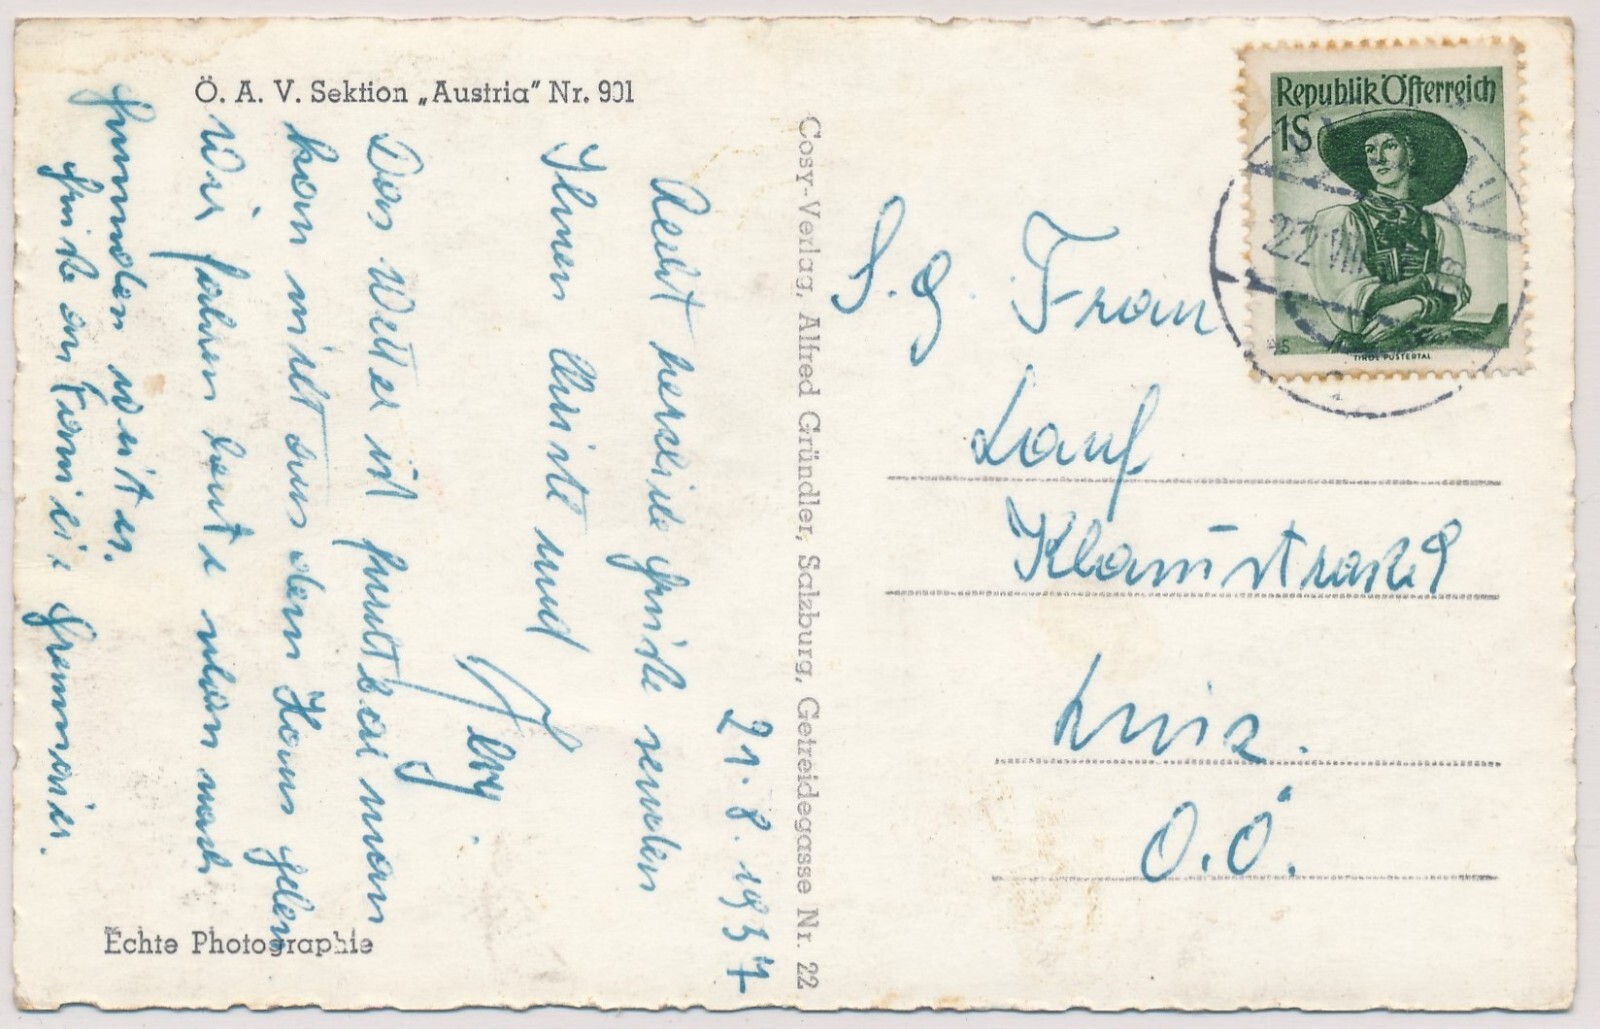 Ö. A. V. Sektion „Austria" Nr. 901
21. 8. 1957
Recht herzliche Grüße senden
Ihnen Christl und
Das Wetter ist furchtbar man
kan nicht aus dem Haus gehen
Wir fahren heute schon nach
Gmunden weiter.
Grüße an Familie
Echte Photographie
Cosy-Verlag, Alfred Gründler, Salzburg, Getreidegasse Nr. 22
Republik Österreich
1S
TIROL PUSTERTAL
22 VIII
S. g. Frau
Lauf
Linz.
O.Ö.